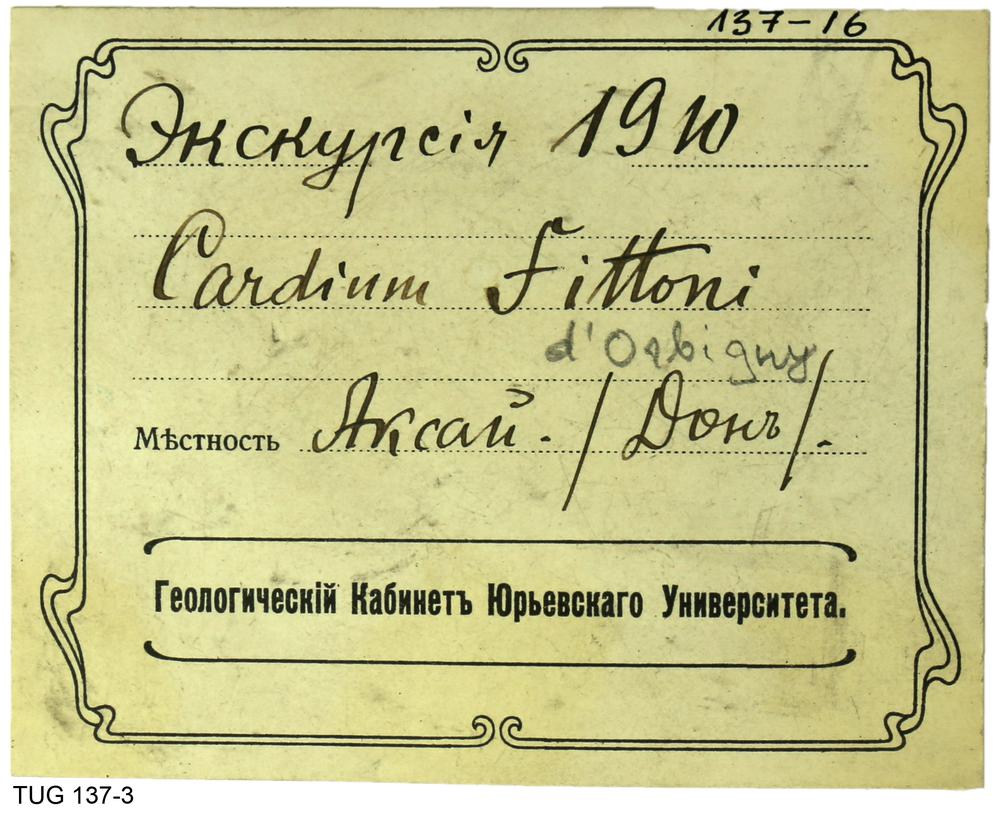 137-16
Экскурсія 1910
Cardium Fittoni
d'Orbigny
Мѣстность Аксай. /Донъ/.
Геологическій Кабинетъ Юрьевскаго Университета.
TUG 137-3